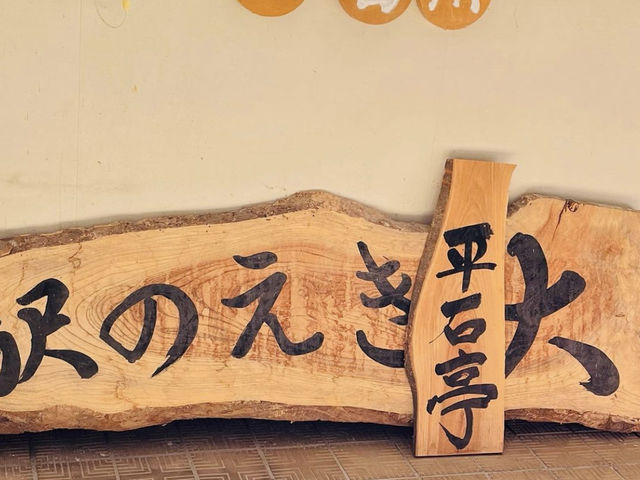 沢のえき大
平石亭